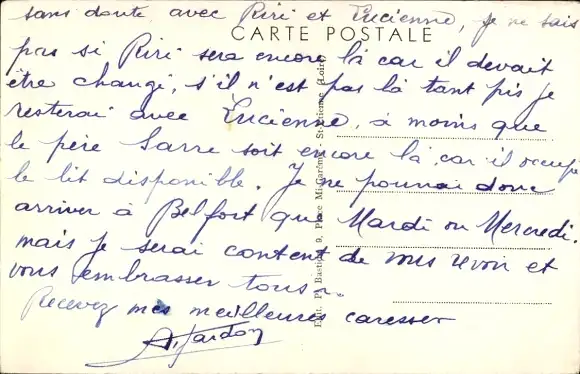 sans doute avec Riri et Lucienne, je ne sais
CARTE POSTALE
pas si Riri sera encore là car il devait
être changé, s'il n'est pas là tant pis je
resterai avec Lucienne, à moins que
le père Sarre soit encore là car il occupe
le lit disponible. Je ne pourrai donc
arriver à Belfort que Mardi ou Mercredi.
mais je serai content de vous revoir et
vous embrasser tous.
Recevez mes meilleures caresses
Edit. Bastide 9, Place Mi-Carême - St-Etienne (Loire)